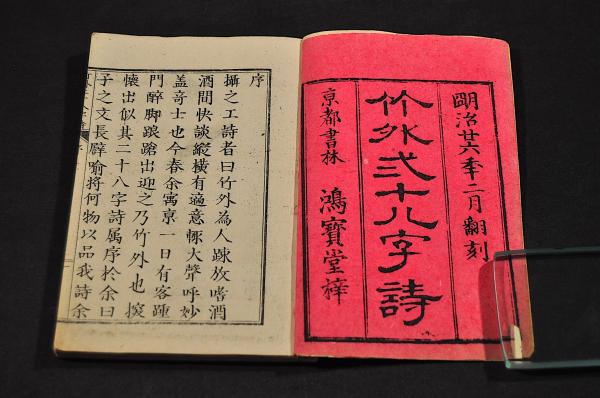 明治廿六季二月翻刻
竹外弍十八字詩
京都書林 鴻寶堂梓
序
攝之工詩者曰竹外為人踈放嗜酒
酒間快談縱橫有適意輒大聲呼妙
盖奇士也今春余寓京一日有客踵
門醉脚踉蹌出迎之乃竹外也探
懷出似其二十八字詩属序於余曰
子之文長辟喻將何物以品我詩余